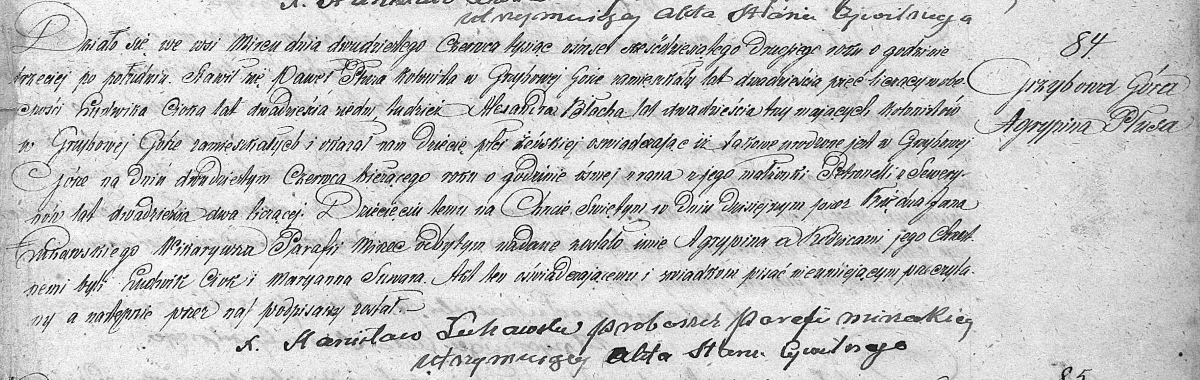 X. Stanisław
utrzymujący Akta Stanu Cywilnego
84
Grzybowa Góra
Agrypina Płusa
Działo się we wsi Mircu dnia dwudziestego Czerwca tysiąc ośmset sześćdziesiątego drugiego roku o godzinie
trzeciej po południu. Stawił się Paweł Płusa kolonista w Grzybowej Górze zamieszkały lat dwadzieścia pięć liczący w obe-
cności Ludwika Cioka lat dwadzieścia siedm, tudzież Alexandra Blacha lat dwadzieścia trzy mających kolonistów
w Grzybowej Górze zamieszkałych i okazał nam Dziecię płci żeńskiej oświadczając iż takowe urodzone jest w Grzybowej
Górze na dniu dwudziestym Czerwca bieżącego roku o godzinie ósmej z rana z jego małżonki Petroneli z Sewery-
nów lat dwadzieścia dwa liczącej. Dziecięciu temu na Chrzcie Świętym w dniu dzisiejszym przez Księdza Jana
Wikaryusza Parafii Mirzec odbytym nadane zostało imie Agrypina a Rodzicami jego Chrzest-
nemi byli Ludwik Ciok i Maryanna Suwara. Akt ten oświadczającemu i świadkom pisać nieumiejącym przeczyta-
ny a następnie przez nas podpisany został.
X. Stanisław Żukowski proboszcz parafii mirzeckiej
utrzymujący Akta Stanu Cywilnego
85